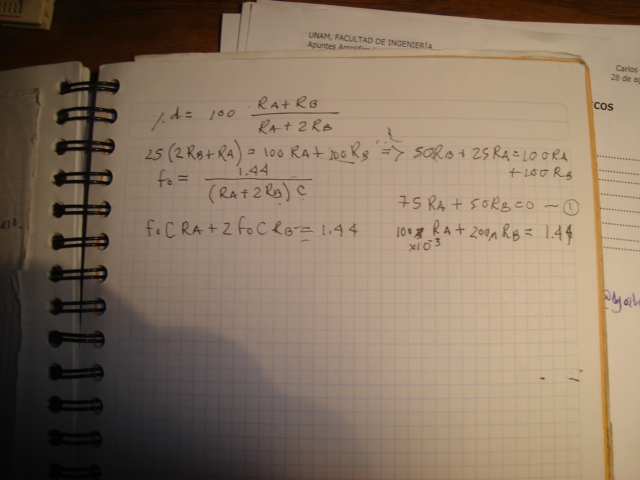 UNAM, FACULTAD DE INGENIERÍA
Apuntes
Carlos
28 de
% d = 100 RA + RB / RA + 2RB
25 (2RB + RA) = 100 RA + 100 RB => 50RB + 25RA = 100RA + 100 RB
fo = 1.44 / (RA + 2RB) C
75 RA + 50 RB = 0 — ①
foC RA + 2 foC RB = 1.44
100 x10^-3 RA + 200 RB = 1.44